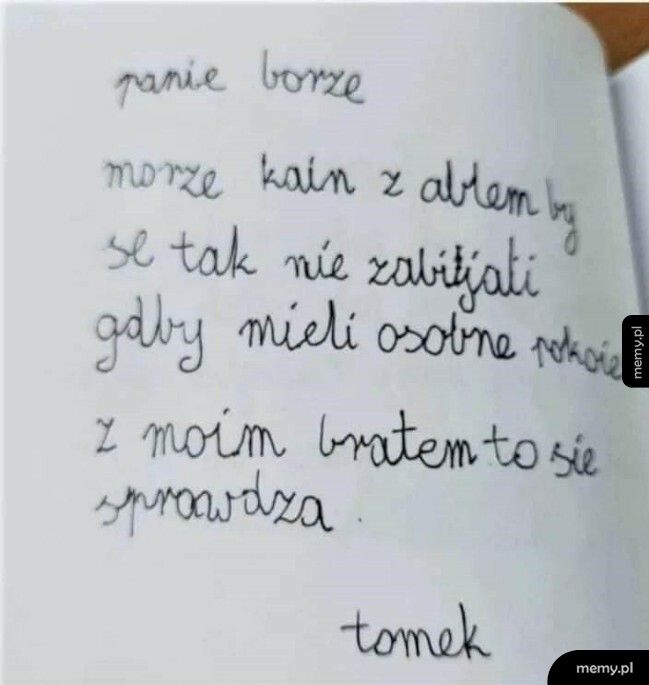 panie borze
morze kain z ablem by
se tak nie zabijali
gdby mieli osobne pokoie
z moim bratem to sie
sprawdza.
tomek
memy.pl
memy.pl